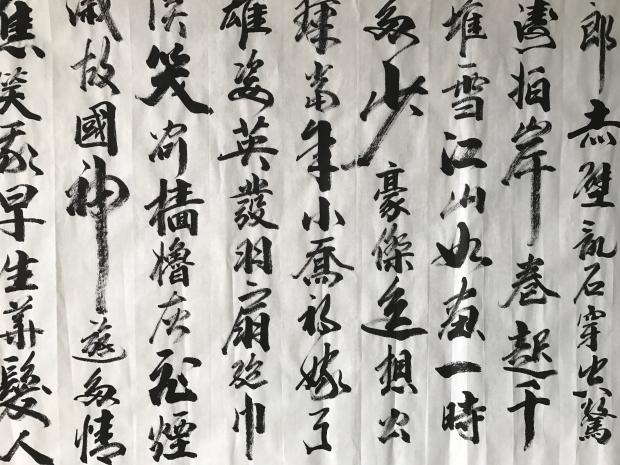 郎赤壁亂石穿空驚
濤拍岸卷起千
堆雪江山如畫一時
多少豪傑遥想公
瑾當年小喬初嫁了
雄姿英發羽扇綸巾
笑間檣櫓灰飛煙
滅故國神遊多情
應笑我早生華髮人